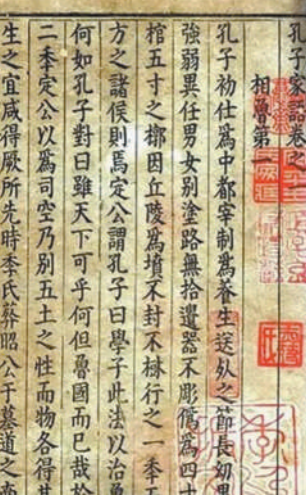 孔子家語卷之一
相魯第一
孔子初仕爲中都宰制爲養生送死之節長幼異
強弱異任男女別塗路無拾遺器不彫僞爲四寸
棺五寸之槨因丘陵爲墳不封不樹行之一秊
方之諸侯則焉定公謂孔子曰學子此法以治魯
何如孔子對曰雖天下可乎何但魯國而已哉於
二秊定公以爲司空乃別五土之性而物各得其
生之宜咸得厥所先時季氏葬昭公于墓道之南